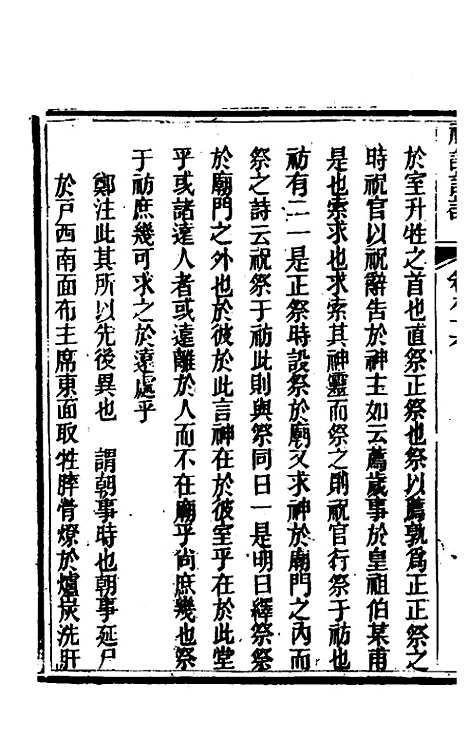 於室升牲之首也直祭正祭也祭以薦孰為正正祭之
時祝官以祝辭告於神主如云薦歲事於皇祖伯某甫
是也索求也求索其神靈而祭之則祝官行祭于祊也
祊有二一是正祭時設祭於廟又求神於廟門之內而
祭之詩云祝祭于祊此則與祭同日一是明日繹祭祭
於廟門之外也於彼於此言神在於彼室乎在於此堂
乎或諸遠人者或遠離於人而不在廟乎尚庶幾也祭
于祊庶幾可求之於遠處乎
鄭注此其所以先後異也　謂朝事時也朝事延尸
於戶西南面布主席東面取牲膟膋燎於爐炭洗肝